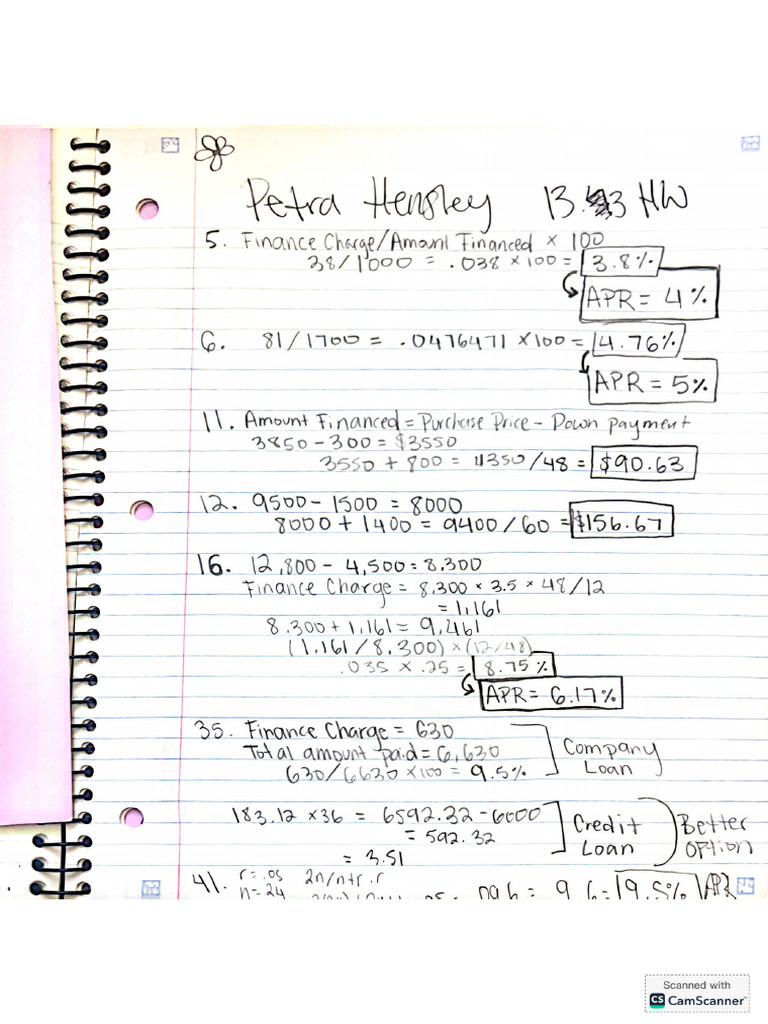 Petra Hensley 13.3 HW
5. Finance Charge/Amount Financed × 100
38/1000 = .038 × 100 = 3.8%
APR = 4%
6. 81/1700 = .0476471 × 100 = 4.76%
APR = 5%
11. Amount Financed = Purchase Price - Down payment
3850 - 300 = $3550
3550 + 800 = 4350/48 = $90.63
12. 9500 - 1500 = 8000
8000 + 1400 = 9400/60 = $156.67
16. 12,800 - 4,500 = 8,300
Finance Charge = 8,300 × 3.5 × 48/12
= 1,161
8.300 + 1,161 = 9,461
(1,161/8,300) × (12/48)
.035 × .25 = 8.75%
APR = 6.17%
35. Finance Charge = 630
Total amount paid = 6,630
630/6630 × 100 = 9.5%
Company
Loan
183.12 × 36 = 6592.32 - 6000
= 592.32
= 3.51
Credit
Loan
Better
option
41. r = .05 2n/n+r . r
n = 24
.096 = 9.6 = 9.5% APR
Scanned with
CS CamScanner